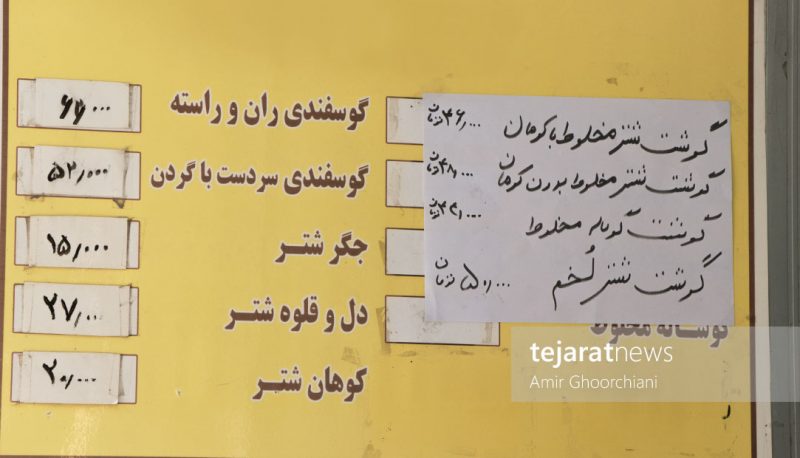 گوشت شتر مخلوط با کوهان ۴۶,۰۰۰ تومان
گوشت شتر مخلوط بدون کوهان ۴۸,۰۰۰ تومان
گوشت گوساله مخلوط ۴۴,۰۰۰ تومان
گوشت شتر لُخم ۵۰,۰۰۰ تومان
گوساله مخلوط
گوسفندی ران و راسته
گوسفندی سردست با گردن ۵۲,۰۰۰
جگر شتر ۱۵,۰۰۰
دل و قلوه شتر ۲۷,۰۰۰
کوهان شتر ۲۰,۰۰۰
tejaratnews
Amir Ghoorchiani